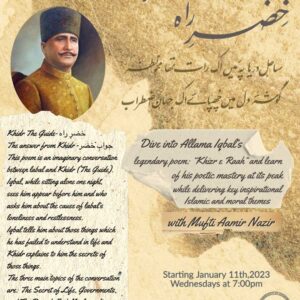 خضرِ راہ
ساحلِ دریا پہ میں اک رات تھا محوِ نظر
گوشۂ دل میں چھپائے اک جہانِ اضطراب
Khidr The Guide- خضر راہ
The answer from Khidr- جواب خضر
This poem is an imaginary conversation
between Iqbal and Khidr (The Guide).
Iqbal, while sitting alone one night,
sees him appear before him and who
asks him about the causes of Iqbal's
loneliness and restlessness.
Iqbal tells him about those things which
he has failed to understand in life and
Khidr explains to him the secrets of
those things.
The three main topics of the conversation
are: The Secret of Life, Governments,
Dive into Allama Iqbal's
legendary poem: "Khizr e Raah" and learn
of his poetic mastery at its peak
while delivering key inspirational
Islamic and moral themes
with Mufti Aamir Nazir
Starting January 11th,2023
Wednesdays at 7:00pm